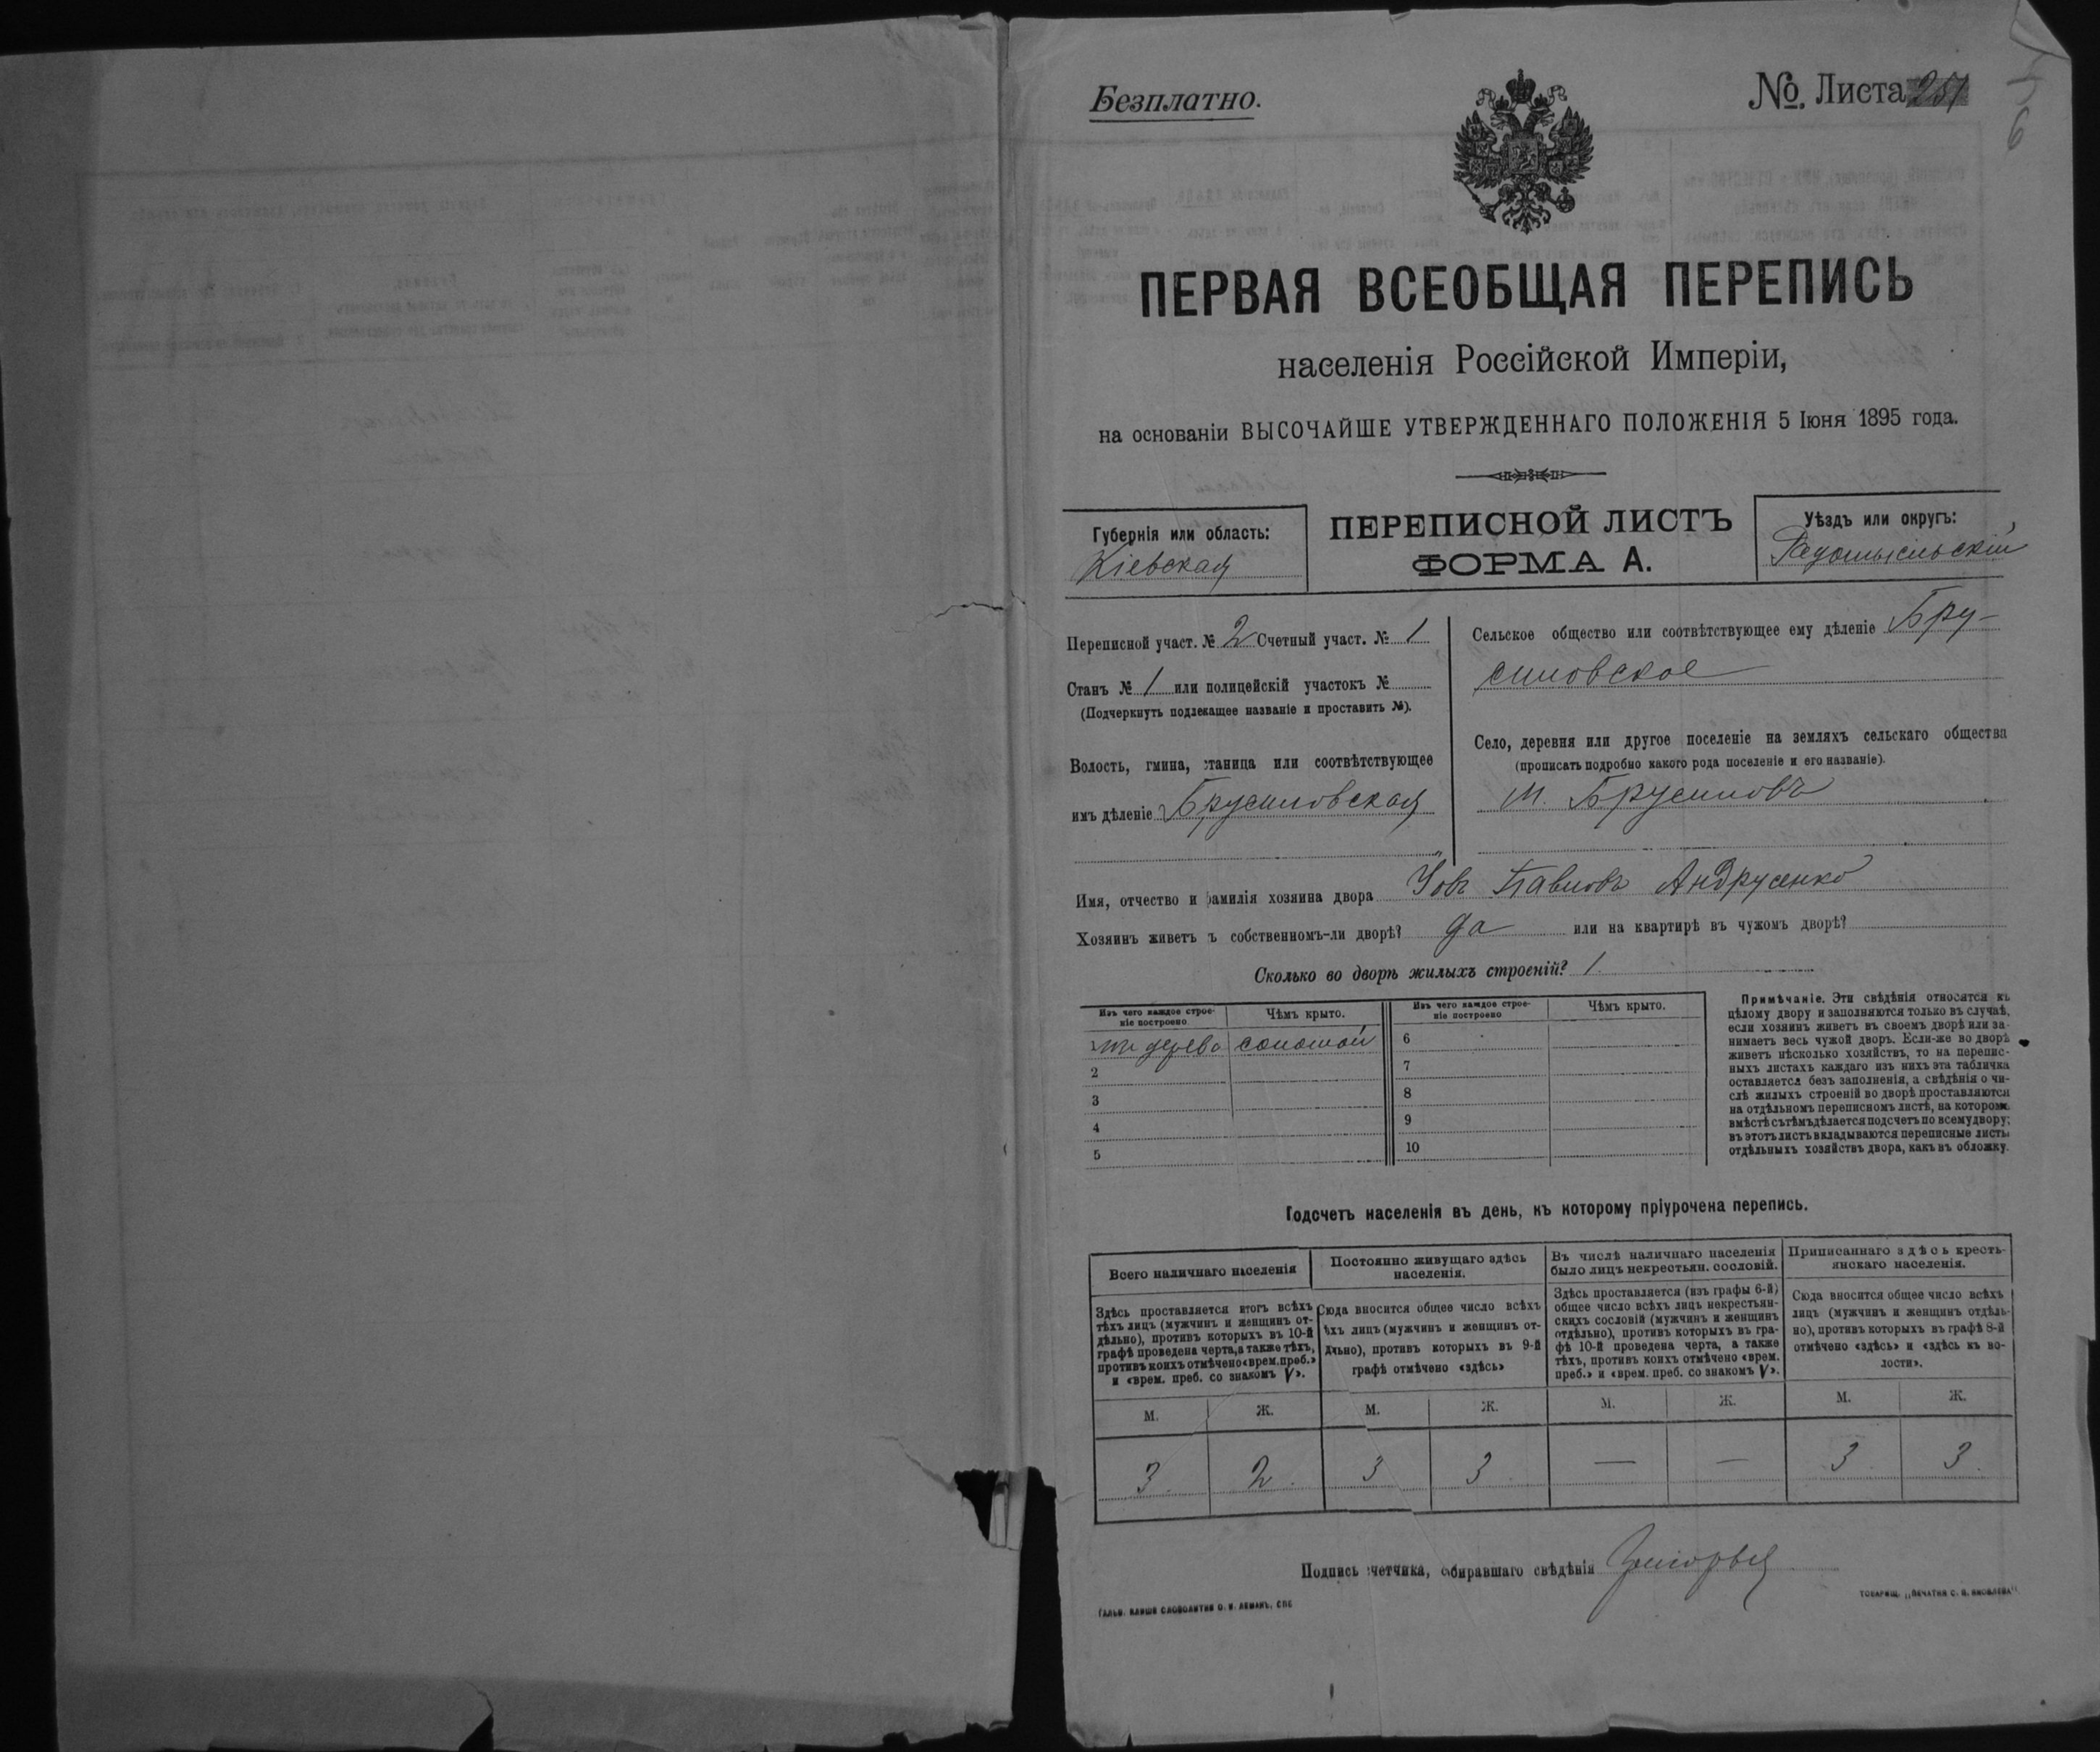 Безплатно.
№. Листа 251
ПЕРВАЯ ВСЕОБЩАЯ ПЕРЕПИСЬ
населенія Россійской Имперіи,
на основаніи ВЫСОЧАЙШЕ УТВЕРЖДЕННАГО ПОЛОЖЕНІЯ 5 Іюня 1895 года.
Губернія или область:
Кіевская
ПЕРЕПИСНОЙ ЛИСТЪ
ФОРМА А.
Уѣздъ или округъ:
Радомысльскій
Переписной участ. № 2 Счетный участ. № 1
Станъ № 1 или полицейскій участокъ №
(Подчеркнуть подлежащее названіе и проставить №).
Волость, гмина, станица или соотвѣтствующее
имъ дѣленіе Брусиловская
Сельское общество или соотвѣтствующее ему дѣленіе Бру-
силовское
Село, деревня или другое поселеніе на земляхъ сельскаго общества
(прописать подробно какого рода поселеніе и его названіе).
м. Брусиловъ
Имя, отчество и фамилія хозяина двора Іовъ Павловъ Андрусенко
Хозяинъ живетъ ъ собственномъ-ли дворѣ? да или на квартирѣ въ чужомъ дворѣ?
Сколько во дворѣ жилыхъ строеній? 1
Изъ чего каждое строе-
ніе построено
Чѣмъ крыто.
Изъ чего каждое строе-
ніе построено
Чѣмъ крыто.
дерева соломой
2
3
4
5
6
7
8
9
10
Примѣчаніе. Эти свѣдѣнія относятся къ
цѣлому двору и заполняются только въ случаѣ,
если хозяинъ живетъ въ своемъ дворѣ или за-
нимаетъ весь чужой дворъ. Если-же во дворѣ
живетъ нѣсколько хозяйствъ, то на перепис-
ныхъ листахъ каждаго изъ нихъ эта табличка
оставляется безъ заполненія, а свѣдѣнія о чи-
слѣ жилыхъ строеній во дворѣ проставляются
на отдѣльномъ переписномъ листѣ, на которомъ
вмѣстѣ съ тѣмъ дѣлается подсчетъ по всему двору;
въ этотъ листъ вкладываются переписные листы
отдѣльныхъ хозяйствъ двора, какъ въ обложку.
Подсчетъ населенія въ день, къ которому пріурочена перепись.
Всего наличнаго населенія
Здѣсь проставляется итогъ всѣхъ
тѣхъ лицъ (мужчинъ и женщинъ от-
дѣльно), противъ которыхъ въ 10-й
графѣ проведена черта, а также тѣхъ,
противъ коихъ отмѣчено «врем. преб.»
и «врем. преб. со знакомъ V».
Постоянно живущаго здѣсь
населенія.
Сюда вносится общее число всѣхъ
ѣхъ лицъ (мужчинъ и женщинъ от-
дѣльно), противъ которыхъ въ 9-й
графѣ отмѣчено «здѣсь»
Въ числѣ наличнаго населенія
было лицъ некрестьян. сословій.
Здѣсь проставляется (изъ графы 6-й)
общее число всѣхъ лицъ некрестьян-
скихъ сословій (мужчинъ и женщинъ
отдѣльно), противъ которыхъ въ гра-
фѣ 10-й проведена черта, а также
тѣхъ, противъ коихъ отмѣчено «врем.
преб.» и «врем. преб. со знакомъ V».
Приписаннаго здѣсь кресть-
янскаго населенія.
Сюда вносится общее число всѣхъ
лицъ (мужчинъ и женщинъ отдѣль-
но), противъ которыхъ въ графѣ 8-й
отмѣчено «здѣсь» и «здѣсь къ во-
лости».
М. Ж. М. Ж. М. Ж. М. Ж.
3 2 3 3 — — 3 3
Подпись счетчика, собиравшаго свѣдѣнія
ГАЛЬВ. КЛИШЕ СЛОВОЛИТНИ О. И. ЛЕМАНЪ, СПБ
ТОВАРИЩ. „ПЕЧАТНЯ С. П. ЯКОВЛЕВА“